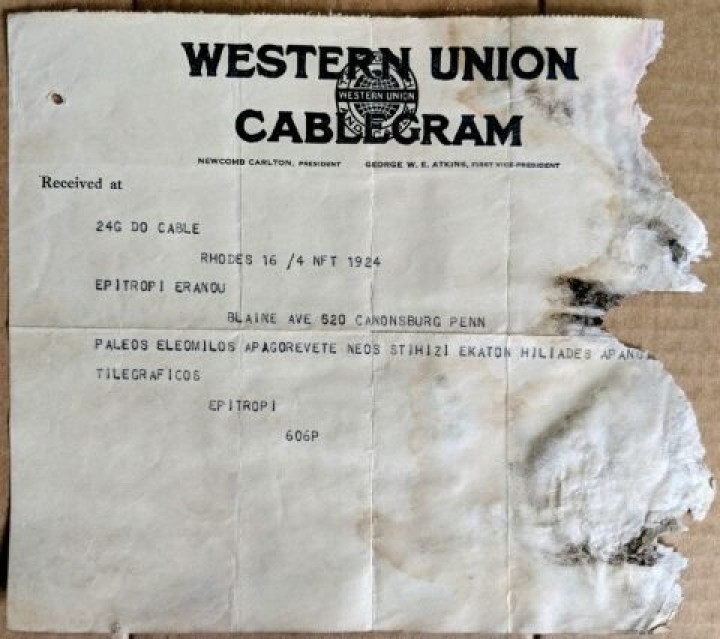 WESTERN UNION
WESTERN UNION
CABLEGRAM
NEWCOMB CARLTON, PRESIDENT GEORGE W. E. ATKINS, FIRST VICE-PRESIDENT
Received at
24G DO CABLE
RHODES 16 /4 NFT 1924
EPITROPI ERANOU
BLAINE AVE 520 CANONSBURG PENN
PALEOS ELEOMILOS APAGOREVETE NEOS STIHIZI EKATON HILIADES
TILEGRAFICOS
EPITROPI
606P